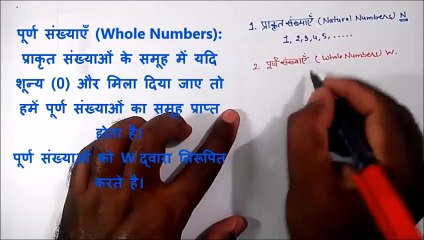 पूर्ण संख्याएँ (Whole Numbers):
प्राकृत संख्याओं के समूह में यदि
शून्य (0) और मिला दिया जाए तो
हमें पूर्ण संख्याओं का समूह प्राप्त
होता है।
पूर्ण संख्याओं को W द्वारा निरूपित
करते है।
1. प्राकृत संख्याएँ (Natural Numbers) N
1, 2, 3, 4, 5, ......
2. पूर्ण संख्याएँ (Whole Numbers) W.